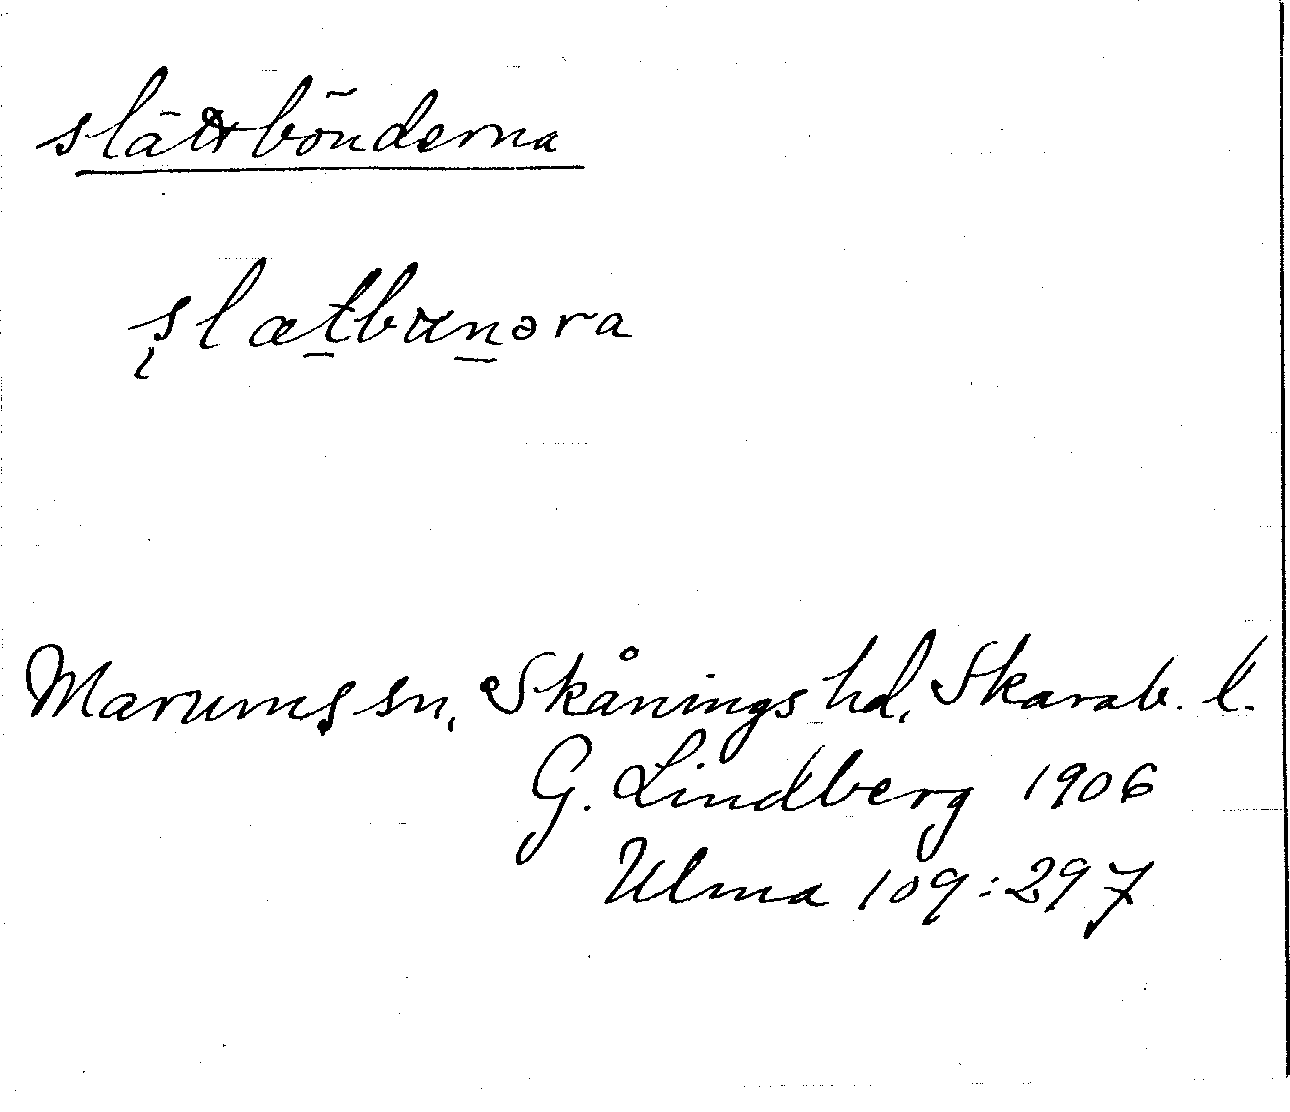 slättbönderna
slætbunəra
Marums sn, Skånings hd, Skarab. l.
G. Lindberg 1906
Ulma 109:297